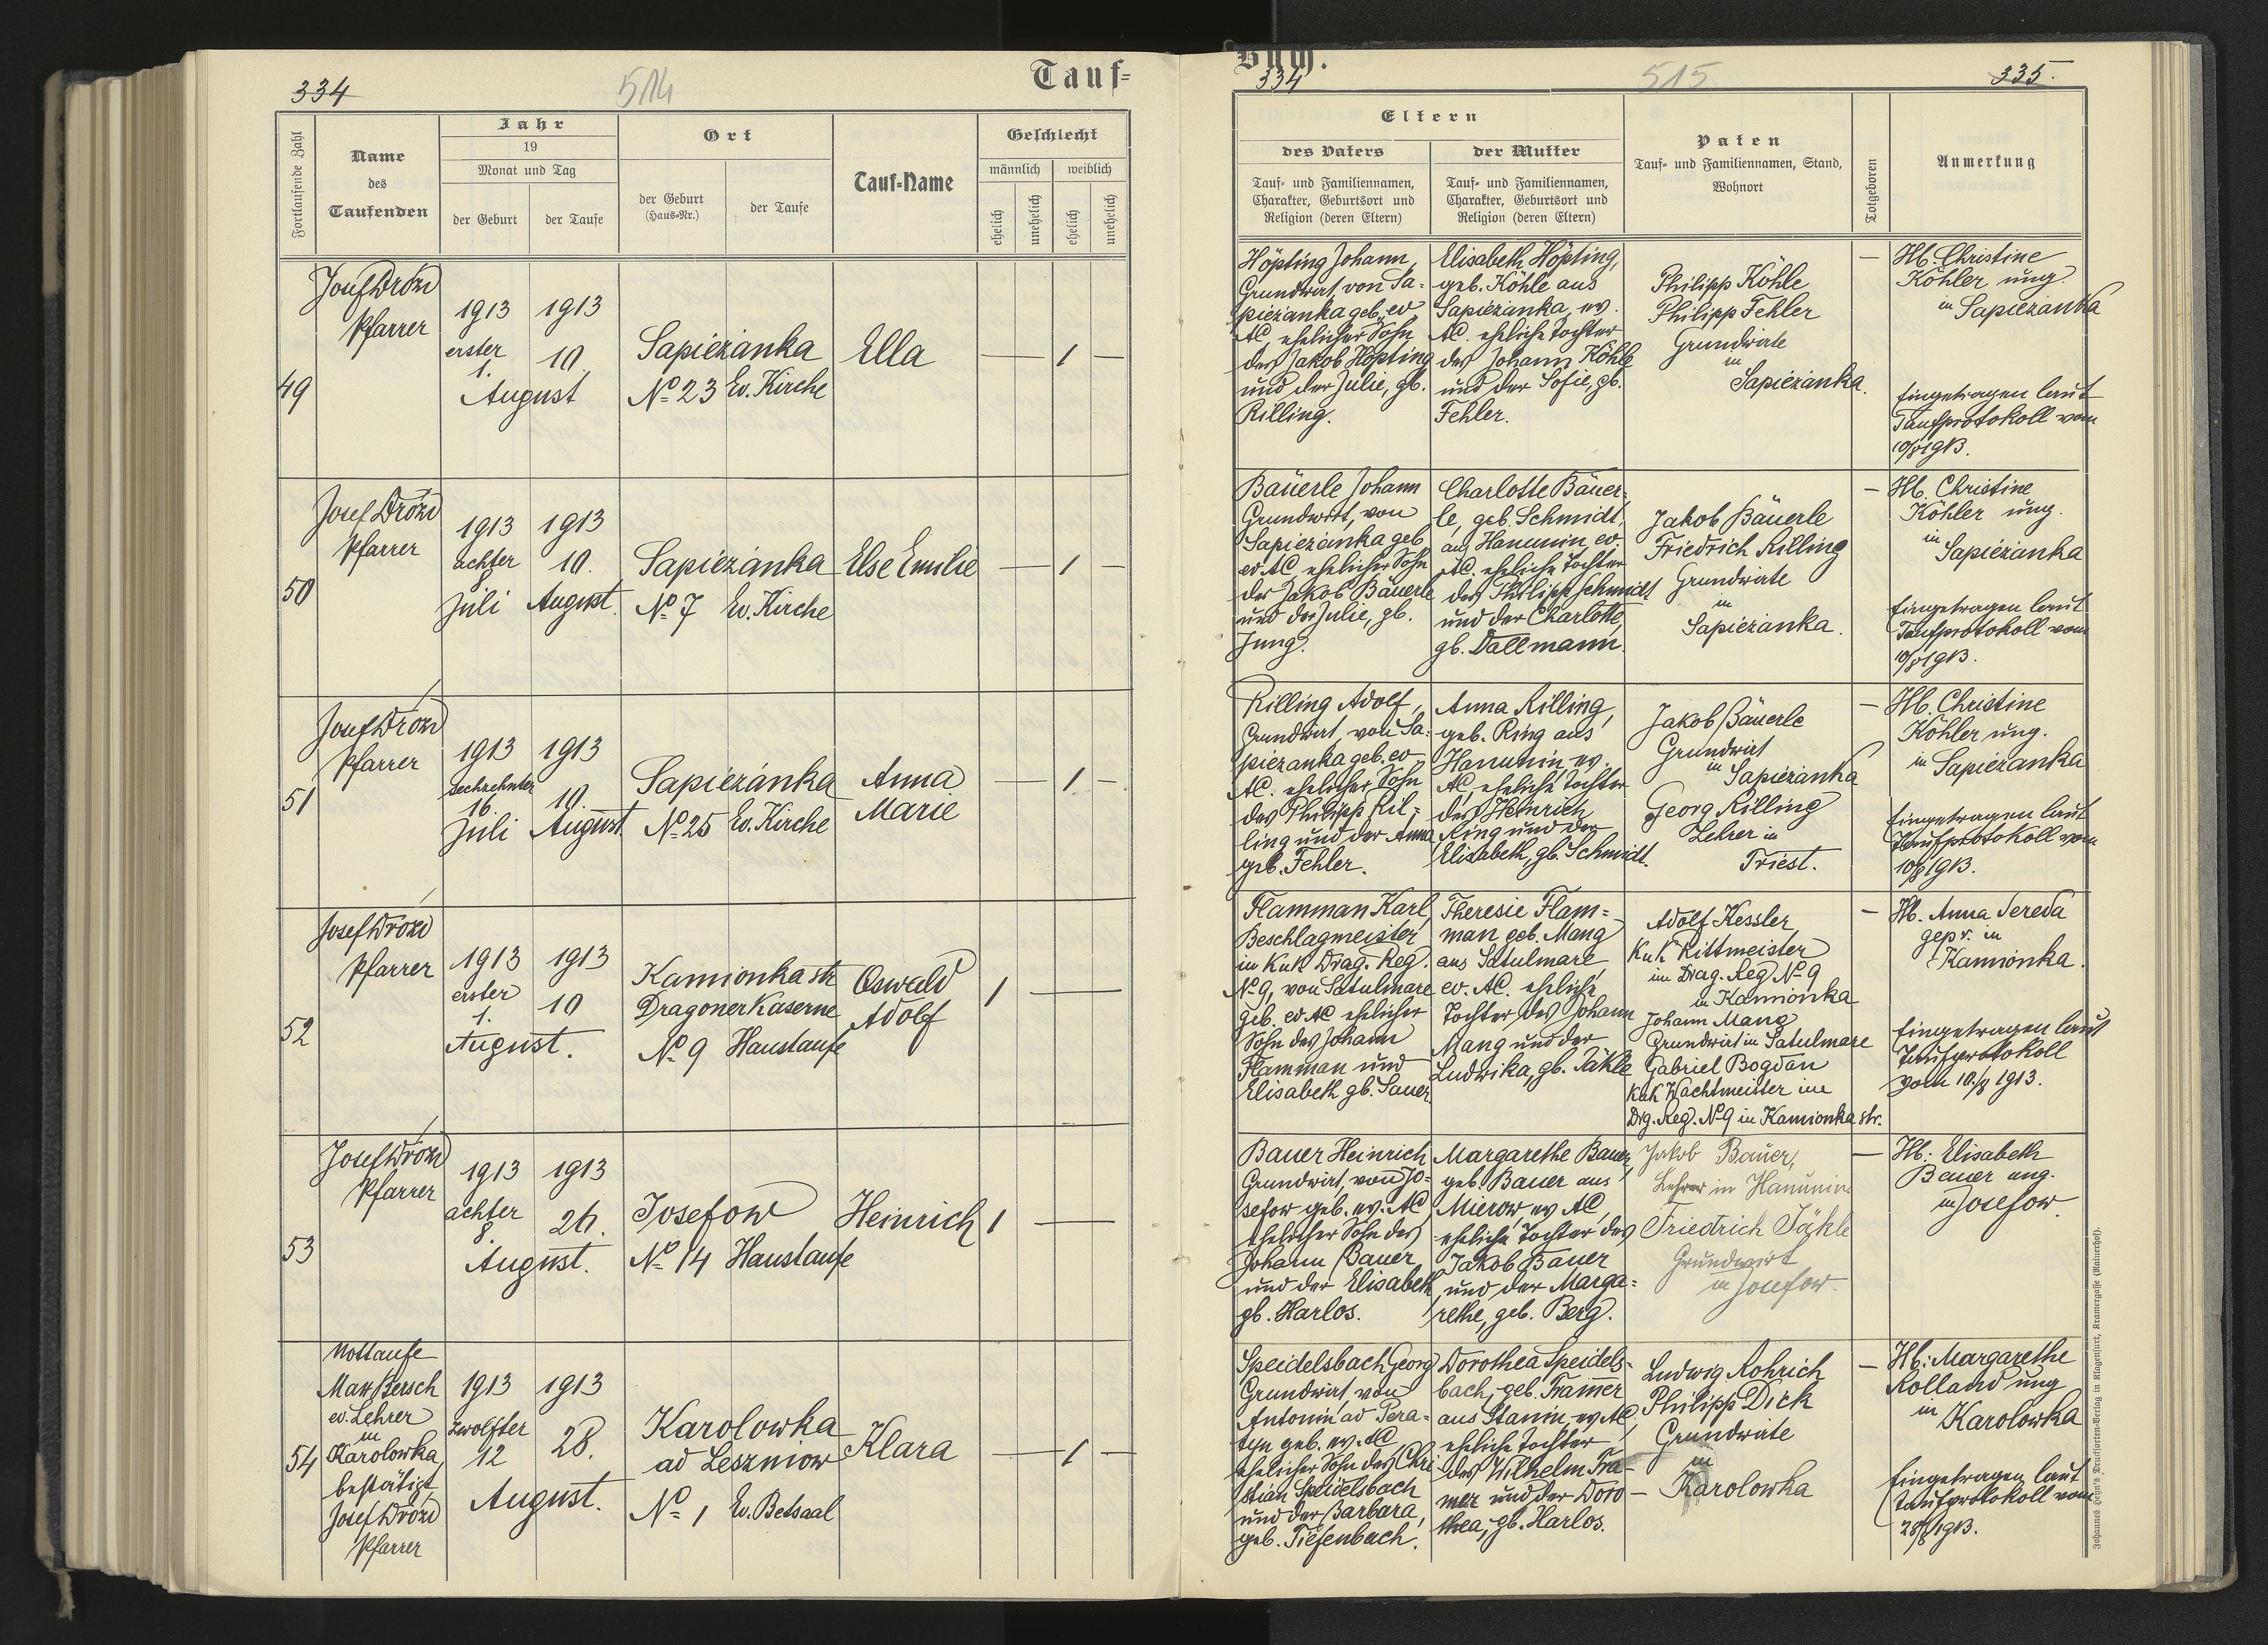 334
514
Tauf-
Fortlaufende Zahl
Name
des
Taufenden
Jahr
19
Monat und Tag
der Geburt
der Taufe
Ort
der Geburt
(Haus-Nr.)
der Taufe
Tauf-Name
Geschlecht
männlich
weiblich
ehelich
unehelich
ehelich
unehelich
49
Josef Drozd
Pfarrer
1913
erster
1.
1913
10.
August
Sapiezanka
No 23
Ev. Kirche
Ella
— 1 —
50
Josef Drozd
Pfarrer
1913
achter
8.
Juli
1913
10.
August.
Sapiezanka
No 7
Ev. Kirche
Else Emilie
— 1 —
51
Josef Drozd
Pfarrer
1913
sechzehnter
16.
Juli
1913
10.
August
Sapiezanka
No 25
Ev. Kirche
Anna
Marie
— 1 —
52
Josef Drozd
Pfarrer
1913
erster
1.
1913
10
August.
Kamionka str
Dragoner Kaserne
No 9
Haustaufe
Oswald
Adolf
1 —
53
Josef Drozd
Pfarrer
1913
achter
8.
1913
26.
August.
Josefow
No 14
Haustaufe
Heinrich
1 —
54
Nottaufe
Max Bersch
ev. Lehrer
in
Karolowka,
bestätigt
Josef Drozd
Pfarrer
1913
zwölfter
12
1913
28.
August.
Karolowka
ad Leszniow
No 1
Ev. Betsaal
Klara
— 1 —
Buch.
334
515
335.
Eltern
des Vaters
Tauf- und Familiennamen,
Charakter, Geburtsort und
Religion (deren Eltern)
der Mutter
Tauf- und Familiennamen,
Charakter, Geburtsort und
Religion (deren Eltern)
Paten
Tauf- und Familiennamen, Stand,
Wohnort
Totgeboren
Anmerkung
Höpting Johann,
Grundwirt von Sa-
piezanka geb. ev
AC, ehelicher Sohn
des Jakob Höpting
und der Julie, gb.
Rilling.
Elisabeth Höpting,
geb. Köhle aus
Sapiezanka, ev.
AC. eheliche Tochter
des Johann Köhle
und der Sofie, gb.
Fehler.
Philipp Köhle
Philipp Fehler
Grundwirte
in
Sapiezanka.
—
Hb. Christine
Köhler ung.
in Sapiezanka
Eingetragen laut
Taufprotokoll vom
10/8 1913.
Bäuerle Johann
Grundwirt, von
Sapiezanka geb
ev AC, ehelicher Sohn
des Jakob Bäuerle
und der Julie, gb.
Jung.
Charlotte Bäuer-
le, geb. Schmidt,
aus Hanunin, ev.
AC. eheliche Tochter
des Philipp Schmidt
und der Charlotte,
gb. Dallmann.
Jakob Bäuerle
Friedrich Rilling
Grundwirte
in
Sapiezanka.
—
Hb. Christine
Köhler ung.
in
Sapiezanka
Eingetragen laut
Taufprotokoll vom
10/8 1913.
Rilling Adolf,
Grundwirt, von Sa-
piezanka geb. ev
AC. ehelicher Sohn
des Philipp Ril-
ling und der Anna
geb. Fehler.
Anna Rilling,
geb. Ring aus
Hanunin, ev.
AC, eheliche Tochter
des Heinrich
Ring und der
Elisabeth, gb. Schmidt.
Jakob Bäuerle
Grundwirt
in Sapiezanka
Georg Rilling
Lehrer in
Triest.
—
Hb. Christine
Köhler ung.
in Sapiezanka
Eingetragen laut
Taufprotokoll vom
10/8 1913.
Flamman Karl,
Beschlagmeister
in KuK Drag. Reg.
No 9, von Satulmare
geb. ev AC ehelicher
Sohn des Johann
Flamman und
Elisabeth gb. Sauer.
Theresie Flam-
man geb. Mang
aus Satulmare
ev. AC. eheliche
Tochter des Johann
Mang und der
Ludwika, gb. Jäkle
Adolf Kessler,
KuK Rittmeister
im Drag. Reg No 9
in Kamionka
Johann Mang
Grundwirt in Satulmare
Gabriel Bogdan
KuK Wachtmeister im
Drg. Reg. No 9 in Kamionka str.
—
Hb. Anna Sereda
gepr. in
Kamionka.
Eingetragen laut
Taufprotokoll
vom 10./8 1913.
Bauer Heinrich
Grundwirt, von Jo-
sefow geb. ev. AC
ehelicher Sohn des
Johann Bauer
und der Elisabeth
gb. Harlos.
Margarethe Bauer,
geb. Bauer aus
Mierow, ev AC,
eheliche Tochter des
Jakob Bauer
und der Marga-
rethe, geb. Berg.
Jakob Bauer,
Lehrer in Hanunin
Friedrich Jäkle
Grundwirt
in Josefow.
—
Hb: Elisabeth
Bauer ung.
in Josefow.
Speidelsbach Georg
Grundwirt, von
Antonin ad Pera-
tyn geb. ev. AC
ehelicher Sohn des Chri
stian Speidelsbach
und der Barbara,
geb. Tiefenbach.
Dorothea Speidels-
bach, geb. Tramer
aus Stanin, ev AC,
eheliche Tochter
des Wilhelm Tra-
mer und der Doro-
thea, gb. Harlos.
Ludwig Rohrich
Philipp Dick
Grundwirte
in
Karolowka
—
Hb: Margarethe
Rolland ung
in Karolowka
Eingetragen laut
Taufprotokoll vom
28/8 1913.
Johannes Heyn's Drucksorten-Verlag in Klagenfurt, Kramergasse (Rainerhof).